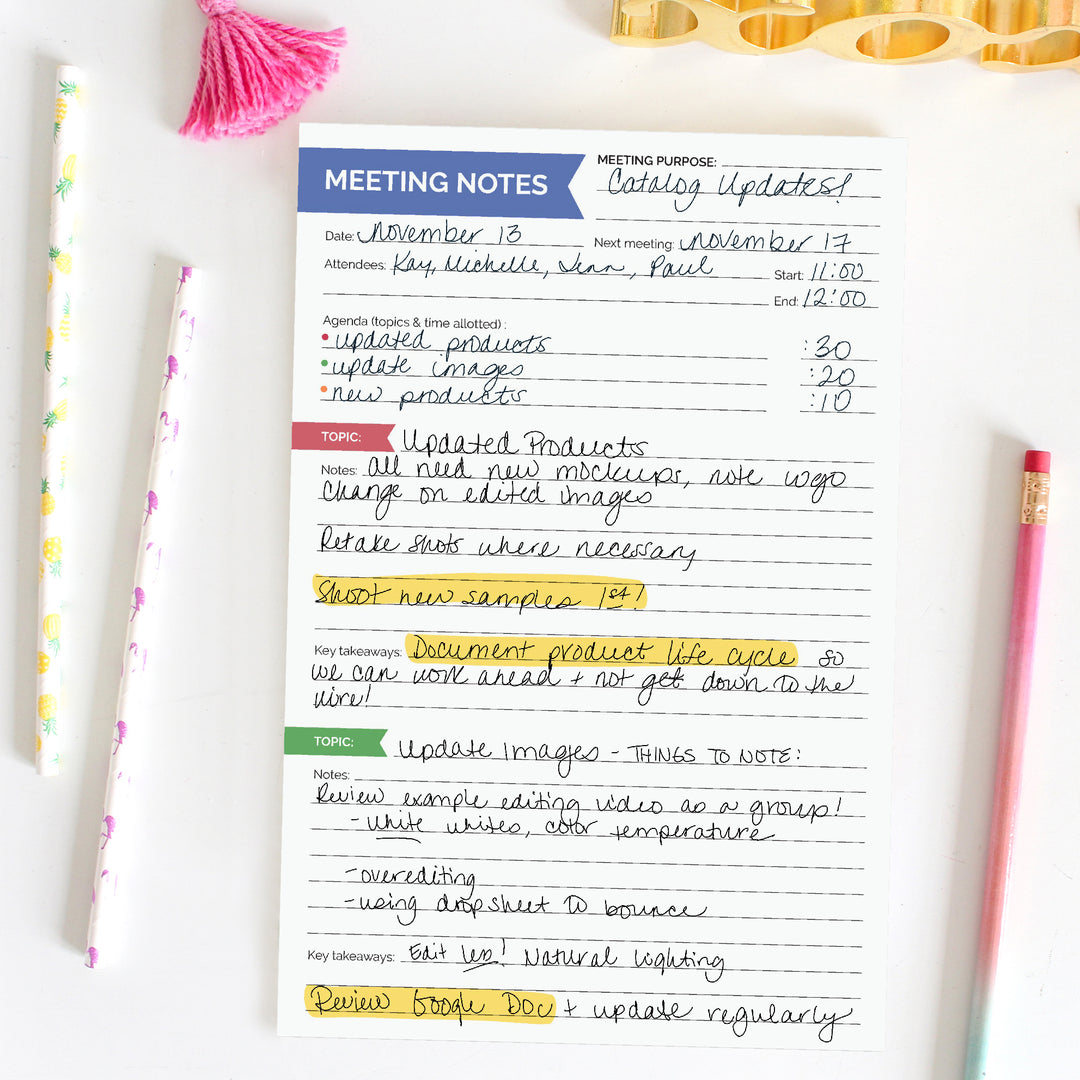 MEETING NOTES
MEETING PURPOSE:
Catalog Updates!
Date: November 13
Next meeting: November 17
Attendees: Kay, Michelle, Jenn, Paul
Start: 11:00
End: 12:00
Agenda (topics & time allotted):
• updated products :30
• update images :20
• new products :10
TOPIC: Updated Products
Notes: all need new mockups, note logo
change on edited images
Retake shots where necessary
Shoot new samples 1st!
Key takeaways: Document product life cycle so
we can work ahead + not get down to the
wire!
TOPIC: Update Images - THINGS TO NOTE:
Notes:
Review example editing video as a group!
- white whites, color temperature
- overediting
- using drop sheet to bounce
Key takeaways: Edit less! Natural lighting
Review Google Doc + update regularly